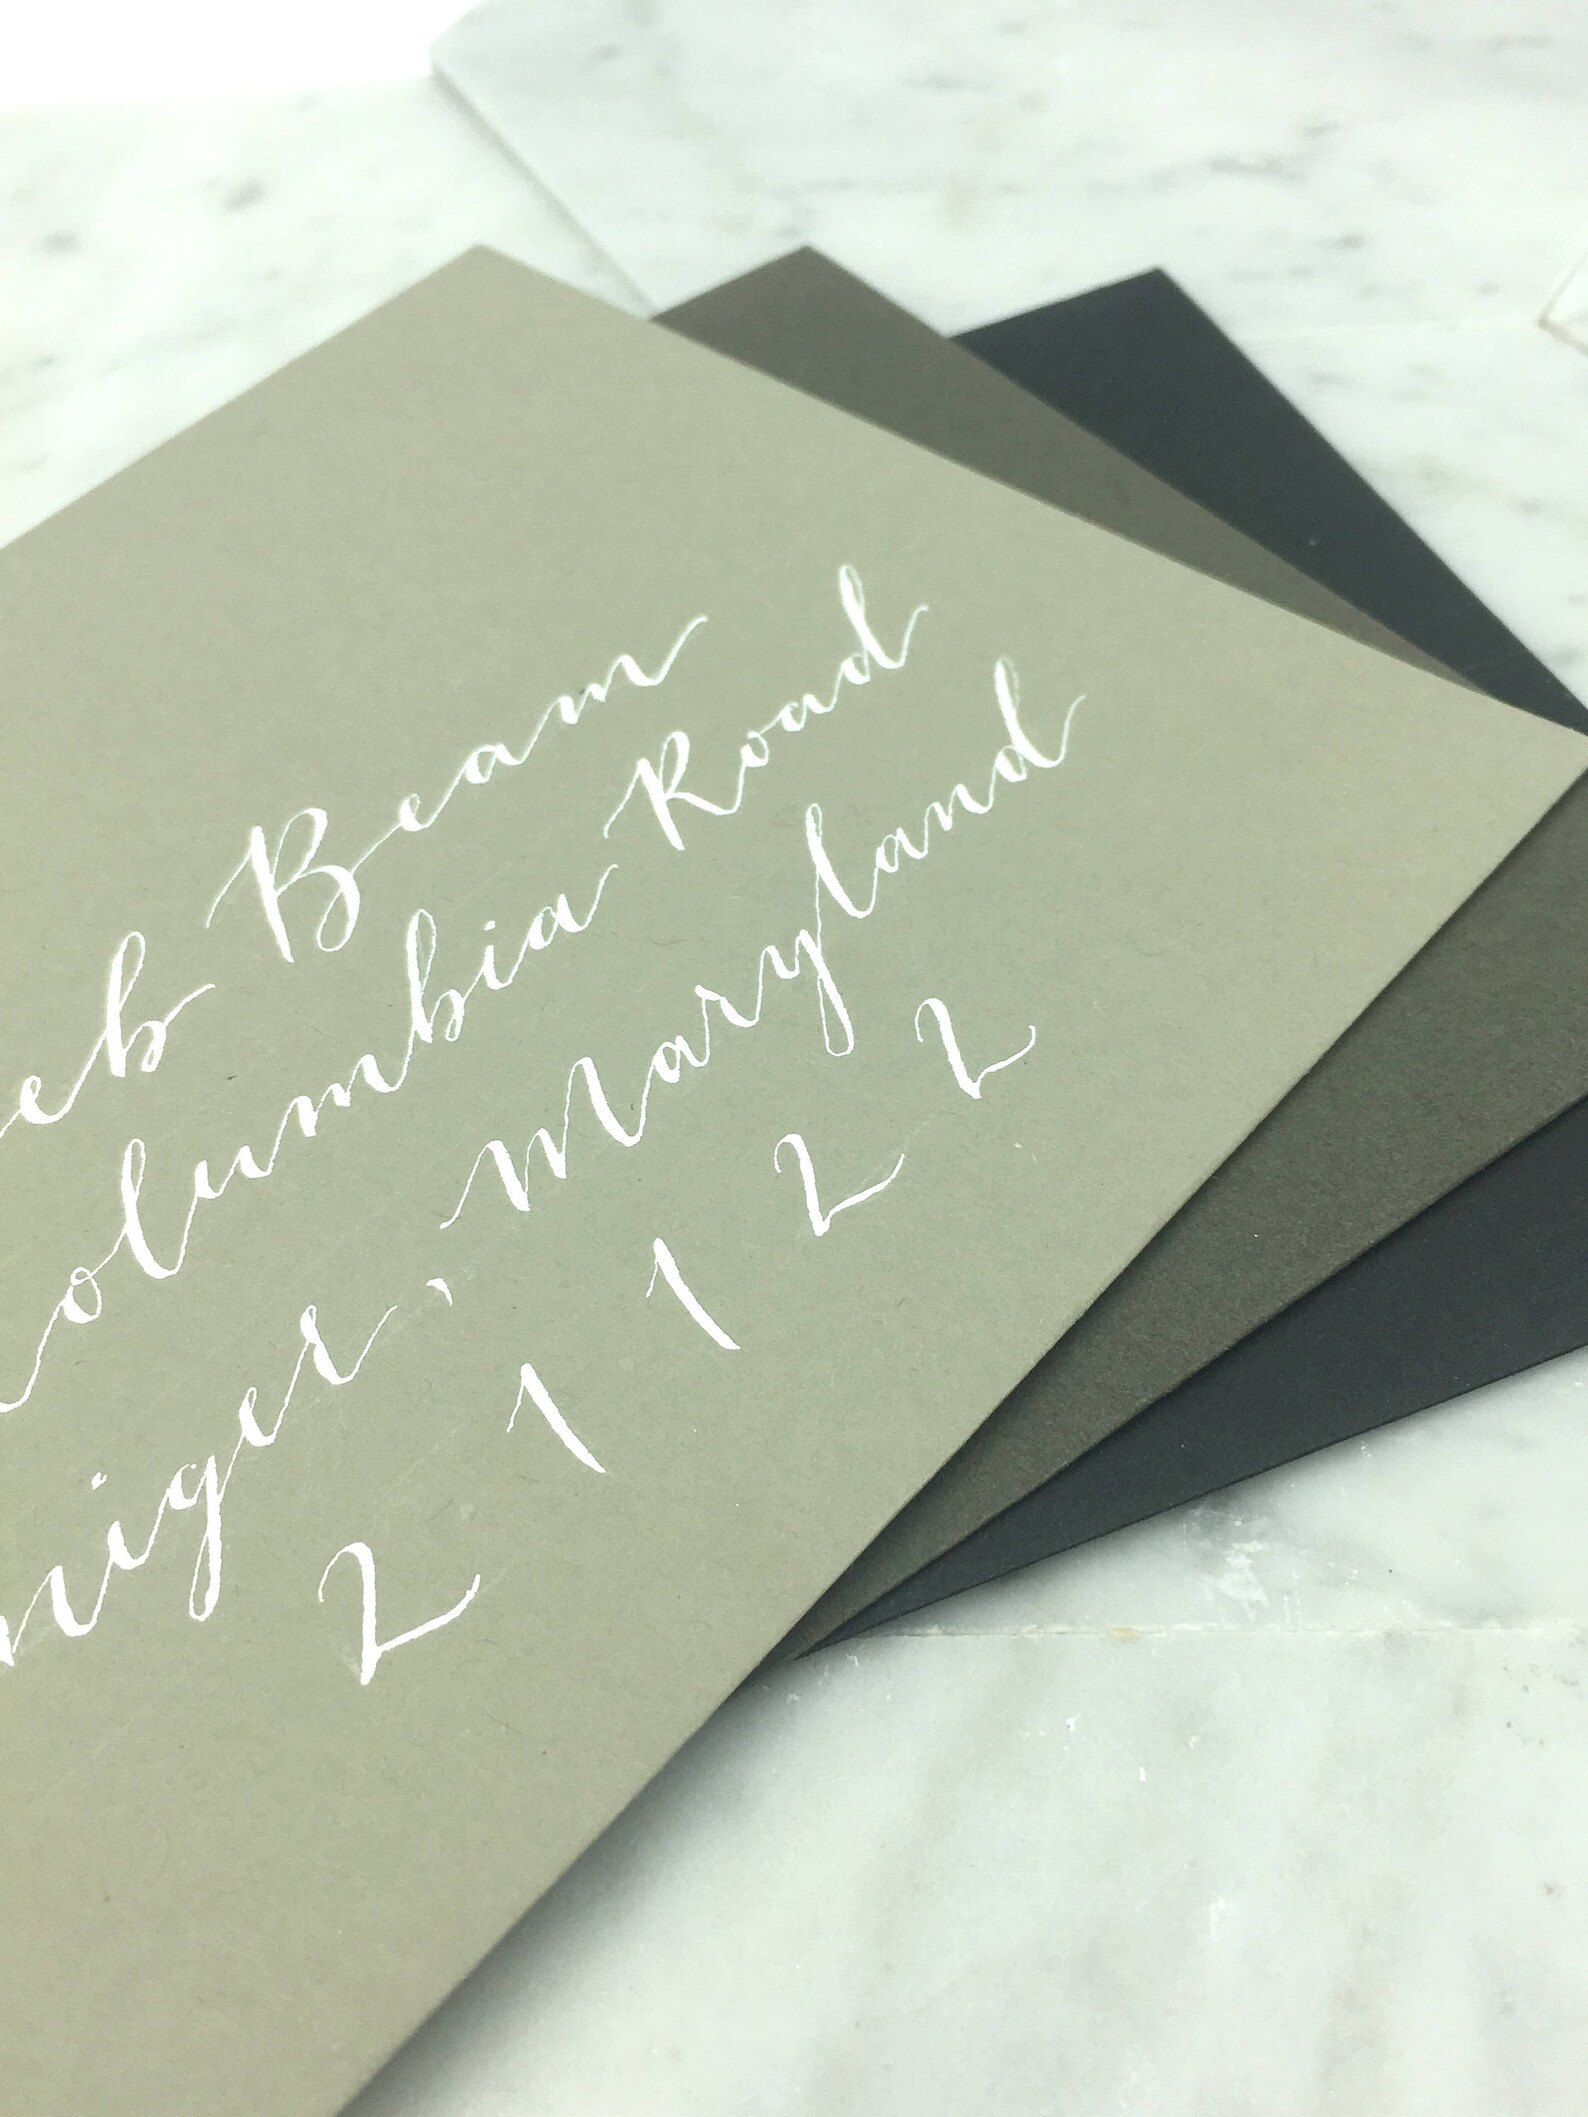 eb Beam
olumbia Road
niger, Maryland
2 1 1 2 2